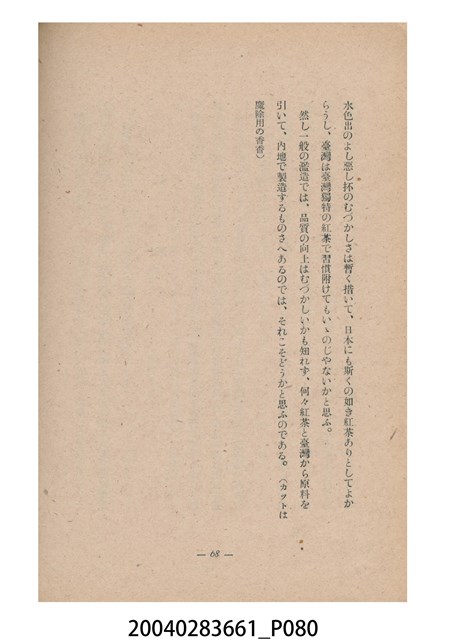 水色出のよし惡し抔のむづかしさは暫く措いて、日本にも斯くの如き紅茶ありとしてよか
らうし、臺灣は臺灣獨特の紅茶で習慣附けてもいゝのじやないかと思ふ。
然し一般の濫造では、品質の向上はむづかしいかも知れず、何々紅茶と臺灣から原料を
引いて、內地で製造するものさへあるのでは、それこそどうかと思ふのである。(カットは
魔除用の香香)
— 68 —
20040283661_P080